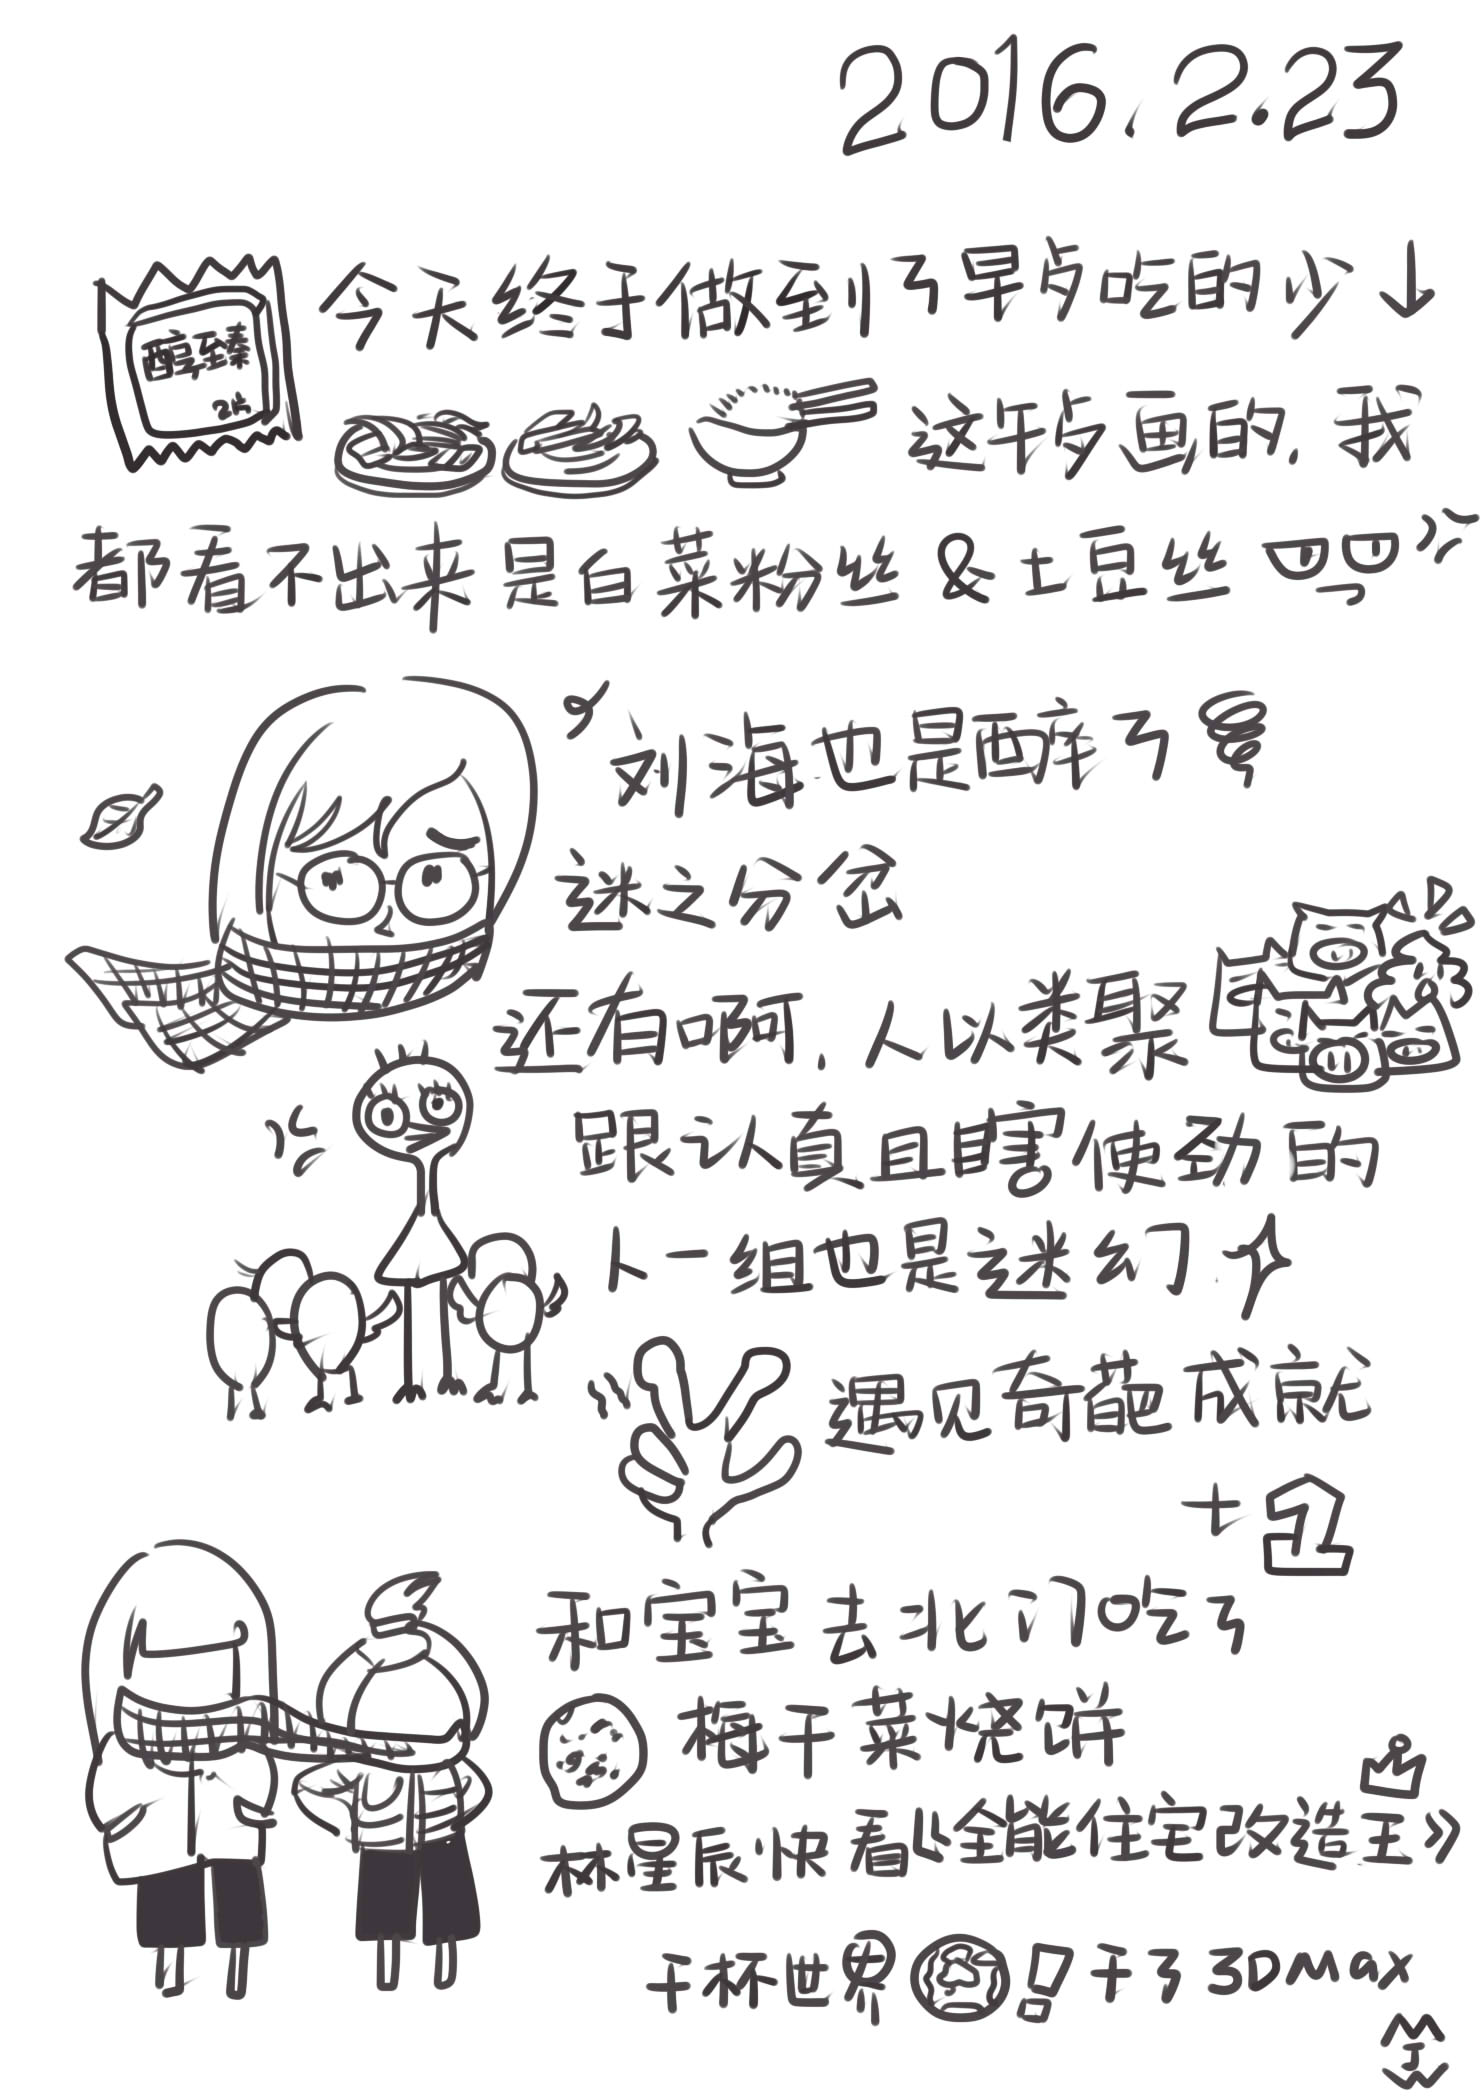 2016.2.23
醇臻
2片
今天终于做到了早点吃的少↓
这午点画的，我
都看不出来是白菜粉丝&土豆丝
刘海也是醉了
谜之分岔
还有啊，人以类聚
跟认真且瞎使劲的
人一组也是迷幻
遇见奇葩成就
+1
和宝宝去北门吃了
梅干菜烧饼
林星辰快看《全能住宅改造王》
干杯世界！干了3DMax